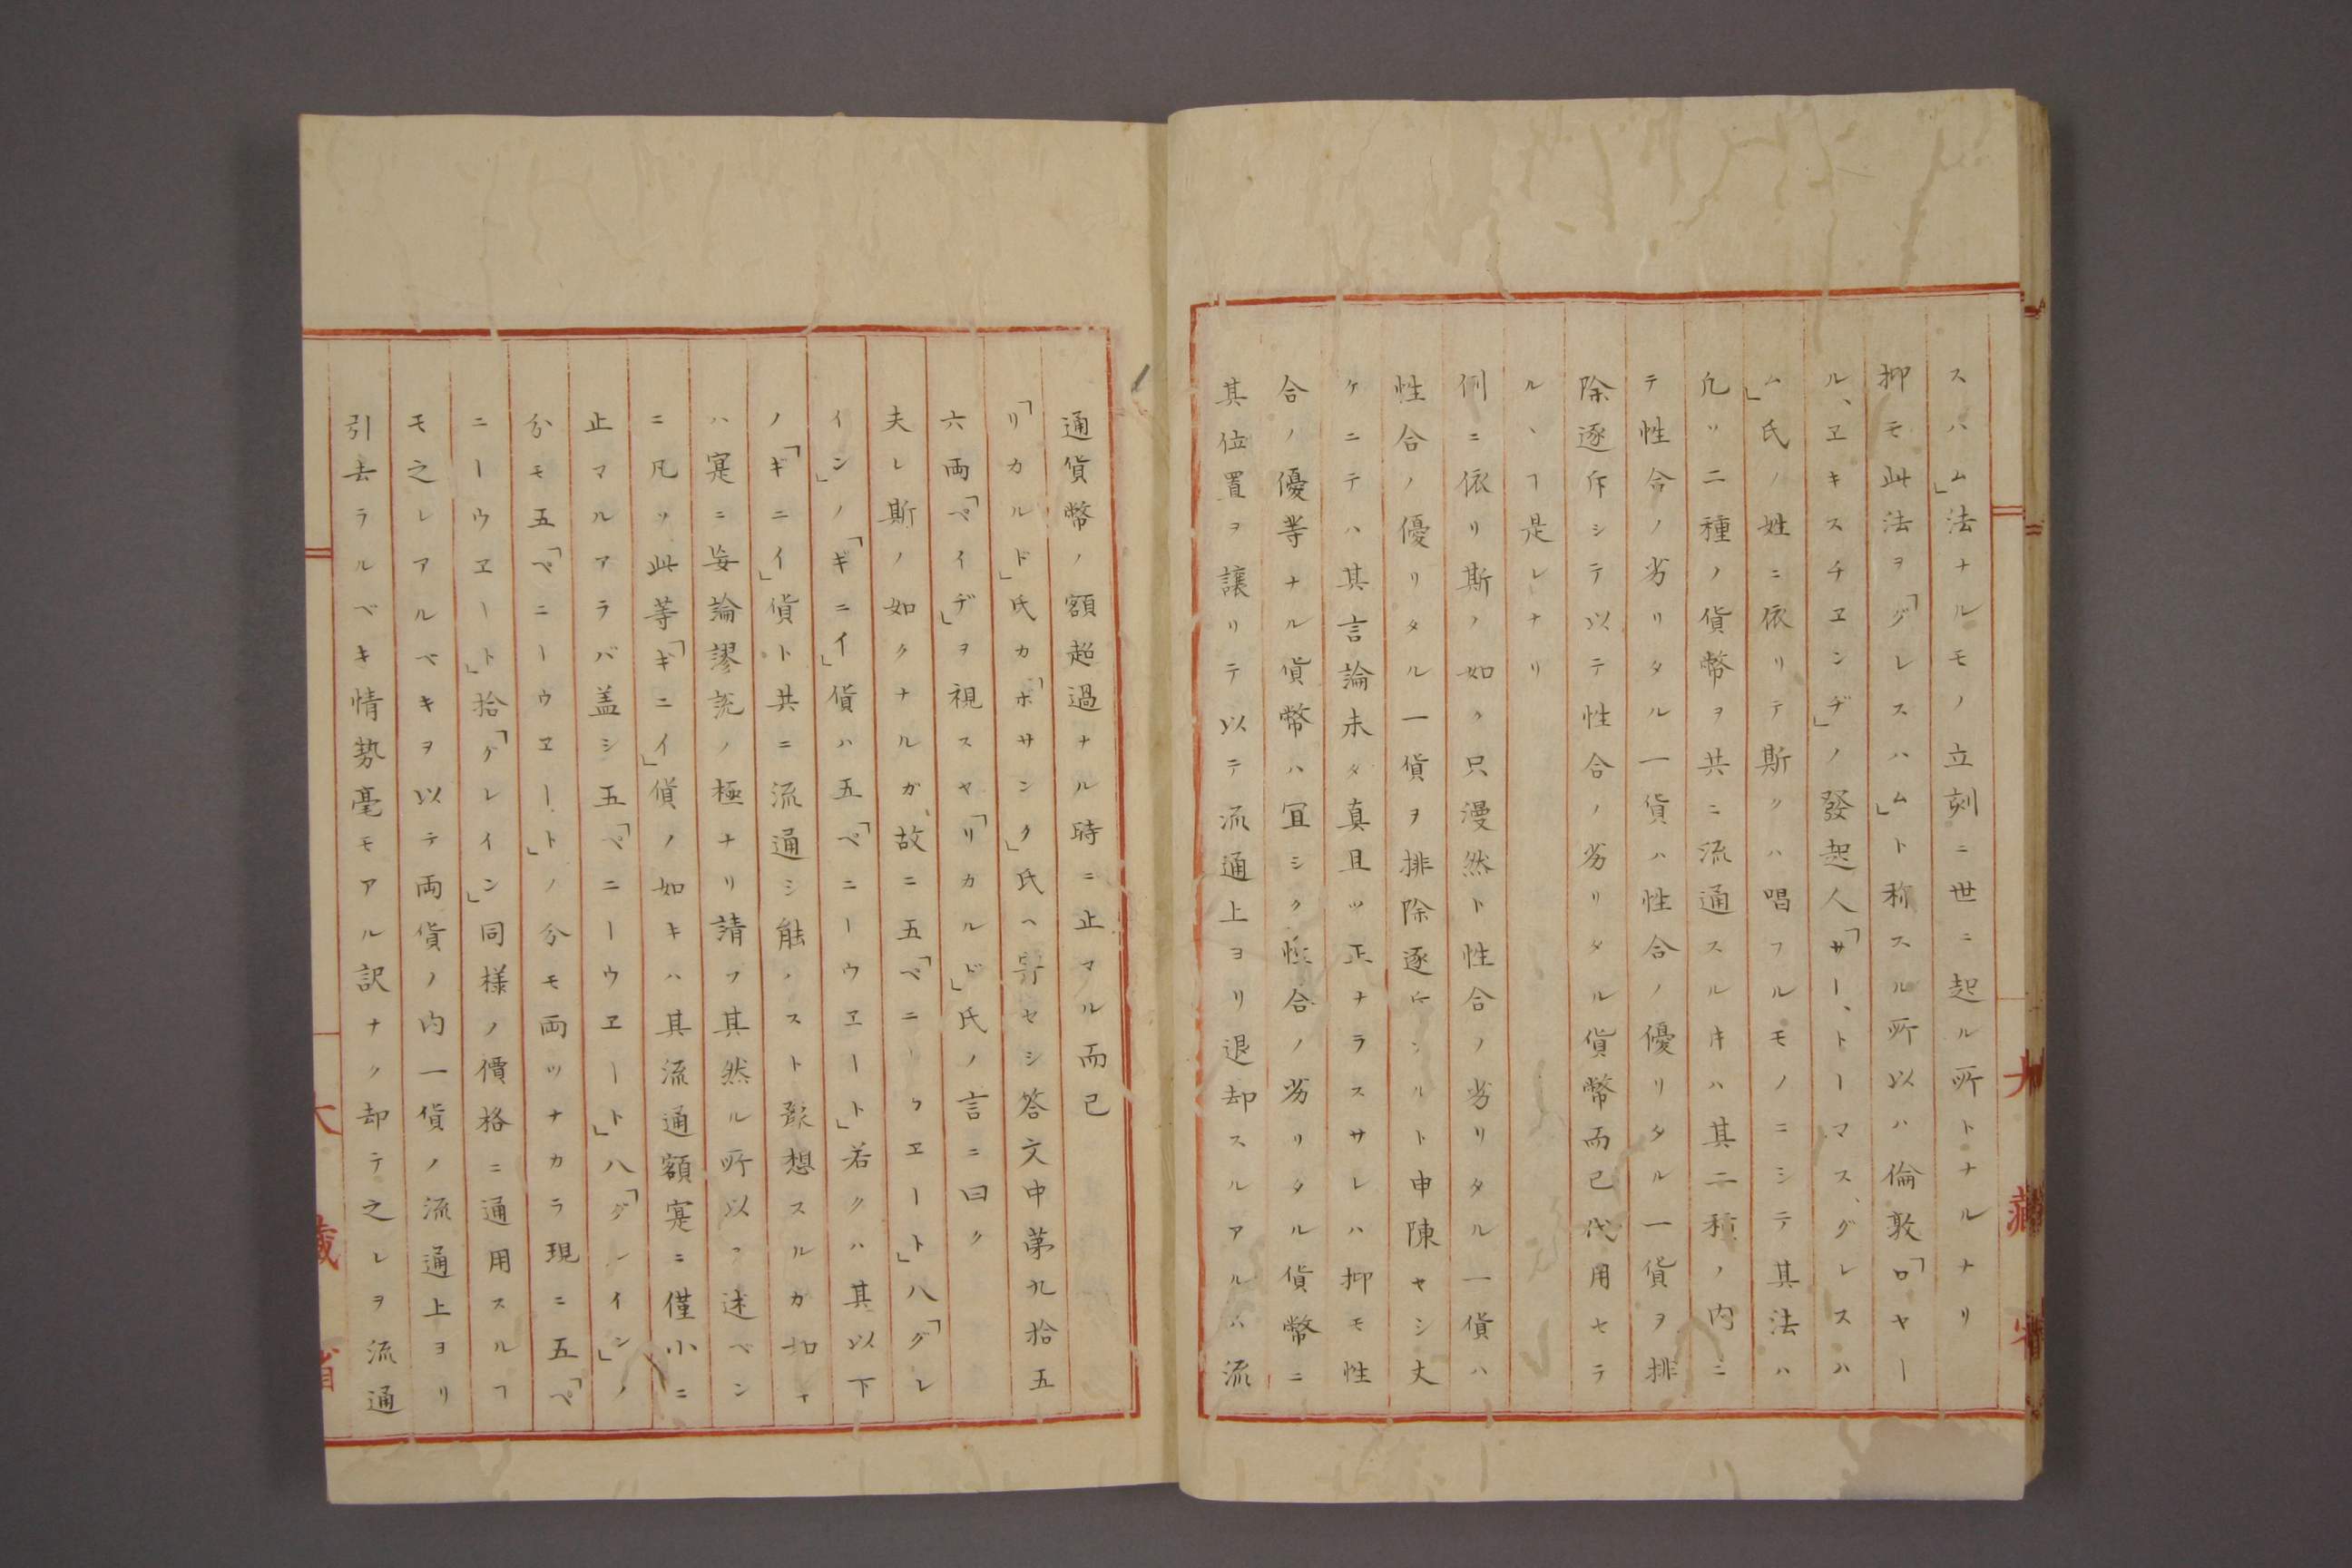 スハム」法ナルモノ立刻ニ世ニ起ル所トナルナリ
抑モ此法ヲ「グレスハム」ト称スル所以ハ倫敦「ロヤー
ル、ヱキスチヱンヂ」ノ發起人「サー、トーマス、グレスハ
ム」氏ノ姓ニ依リテ斯クハ唱フルモノニシテ其法ハ
凡ソ二種ノ貨幣ヲ共ニ流通スルキハ其二種ノ内ニ
テ性合ノ劣リタル一貨ハ性合ノ優リタル一貨ヲ排
除逐斥シテ以テ性合ノ劣リタル貨幣而已代用セラ
ルヽヿ是レナリ
例ニ依リ斯ノ如ク只漫然ト性合ノ劣リタル一貨ハ
性合ノ優リタル一貨ヲ排除逐斥シルト申陳ヤシ丈
ケニテハ其言論未タ真且ツ正ナラスサレハ抑モ性
合ノ優等ナル貨幣ハ冝シク性合ノ劣リタル貨幣ニ
其位置ヲ譲リテ以テ流通上ヨリ退却スルアルハ流
通貨幣ノ額超過ナル時ニ止マル而已
「リカルド」氏カ「ホサンク」氏ヘ寄セシ答文中第九拾五
六両「ペイヂ」ヲ視スヤ「リカルド」氏ノ言ニ曰ク
夫レ斯ノ如クナルガ故ニ五「ペニーウヱート」八「グレ
イン」ノ「ギニイ」貨ハ五「ペニーウヱート」若クハ其以下
ノ「ギニイ」貨ト共ニ流通シ能ハスト歎想スルカ如キ
ハ寔ニ妄論謬説ノ極ナリ請フ其然ル所以ヲ述ベン
ニ凡ソ此等「ギニイ」貨ノ如キハ其流通額寔ニ僅小ニ
止マルアラバ盖シ五「ペニーウヱート」八「グレイン」ノ
分モ五「ペニーウヱート」ノ分モ両ツナカラ現ニ五「ペ
ニーウヱート」拾「グレイン」同様ノ價格ニ通用スルヿ
モ之レアルベキヲ以テ両貨ノ内一貨ノ流通上ヨリ
引去ラルベキ情勢毫モアル訳ナク却テ之レヲ流通
大藏省